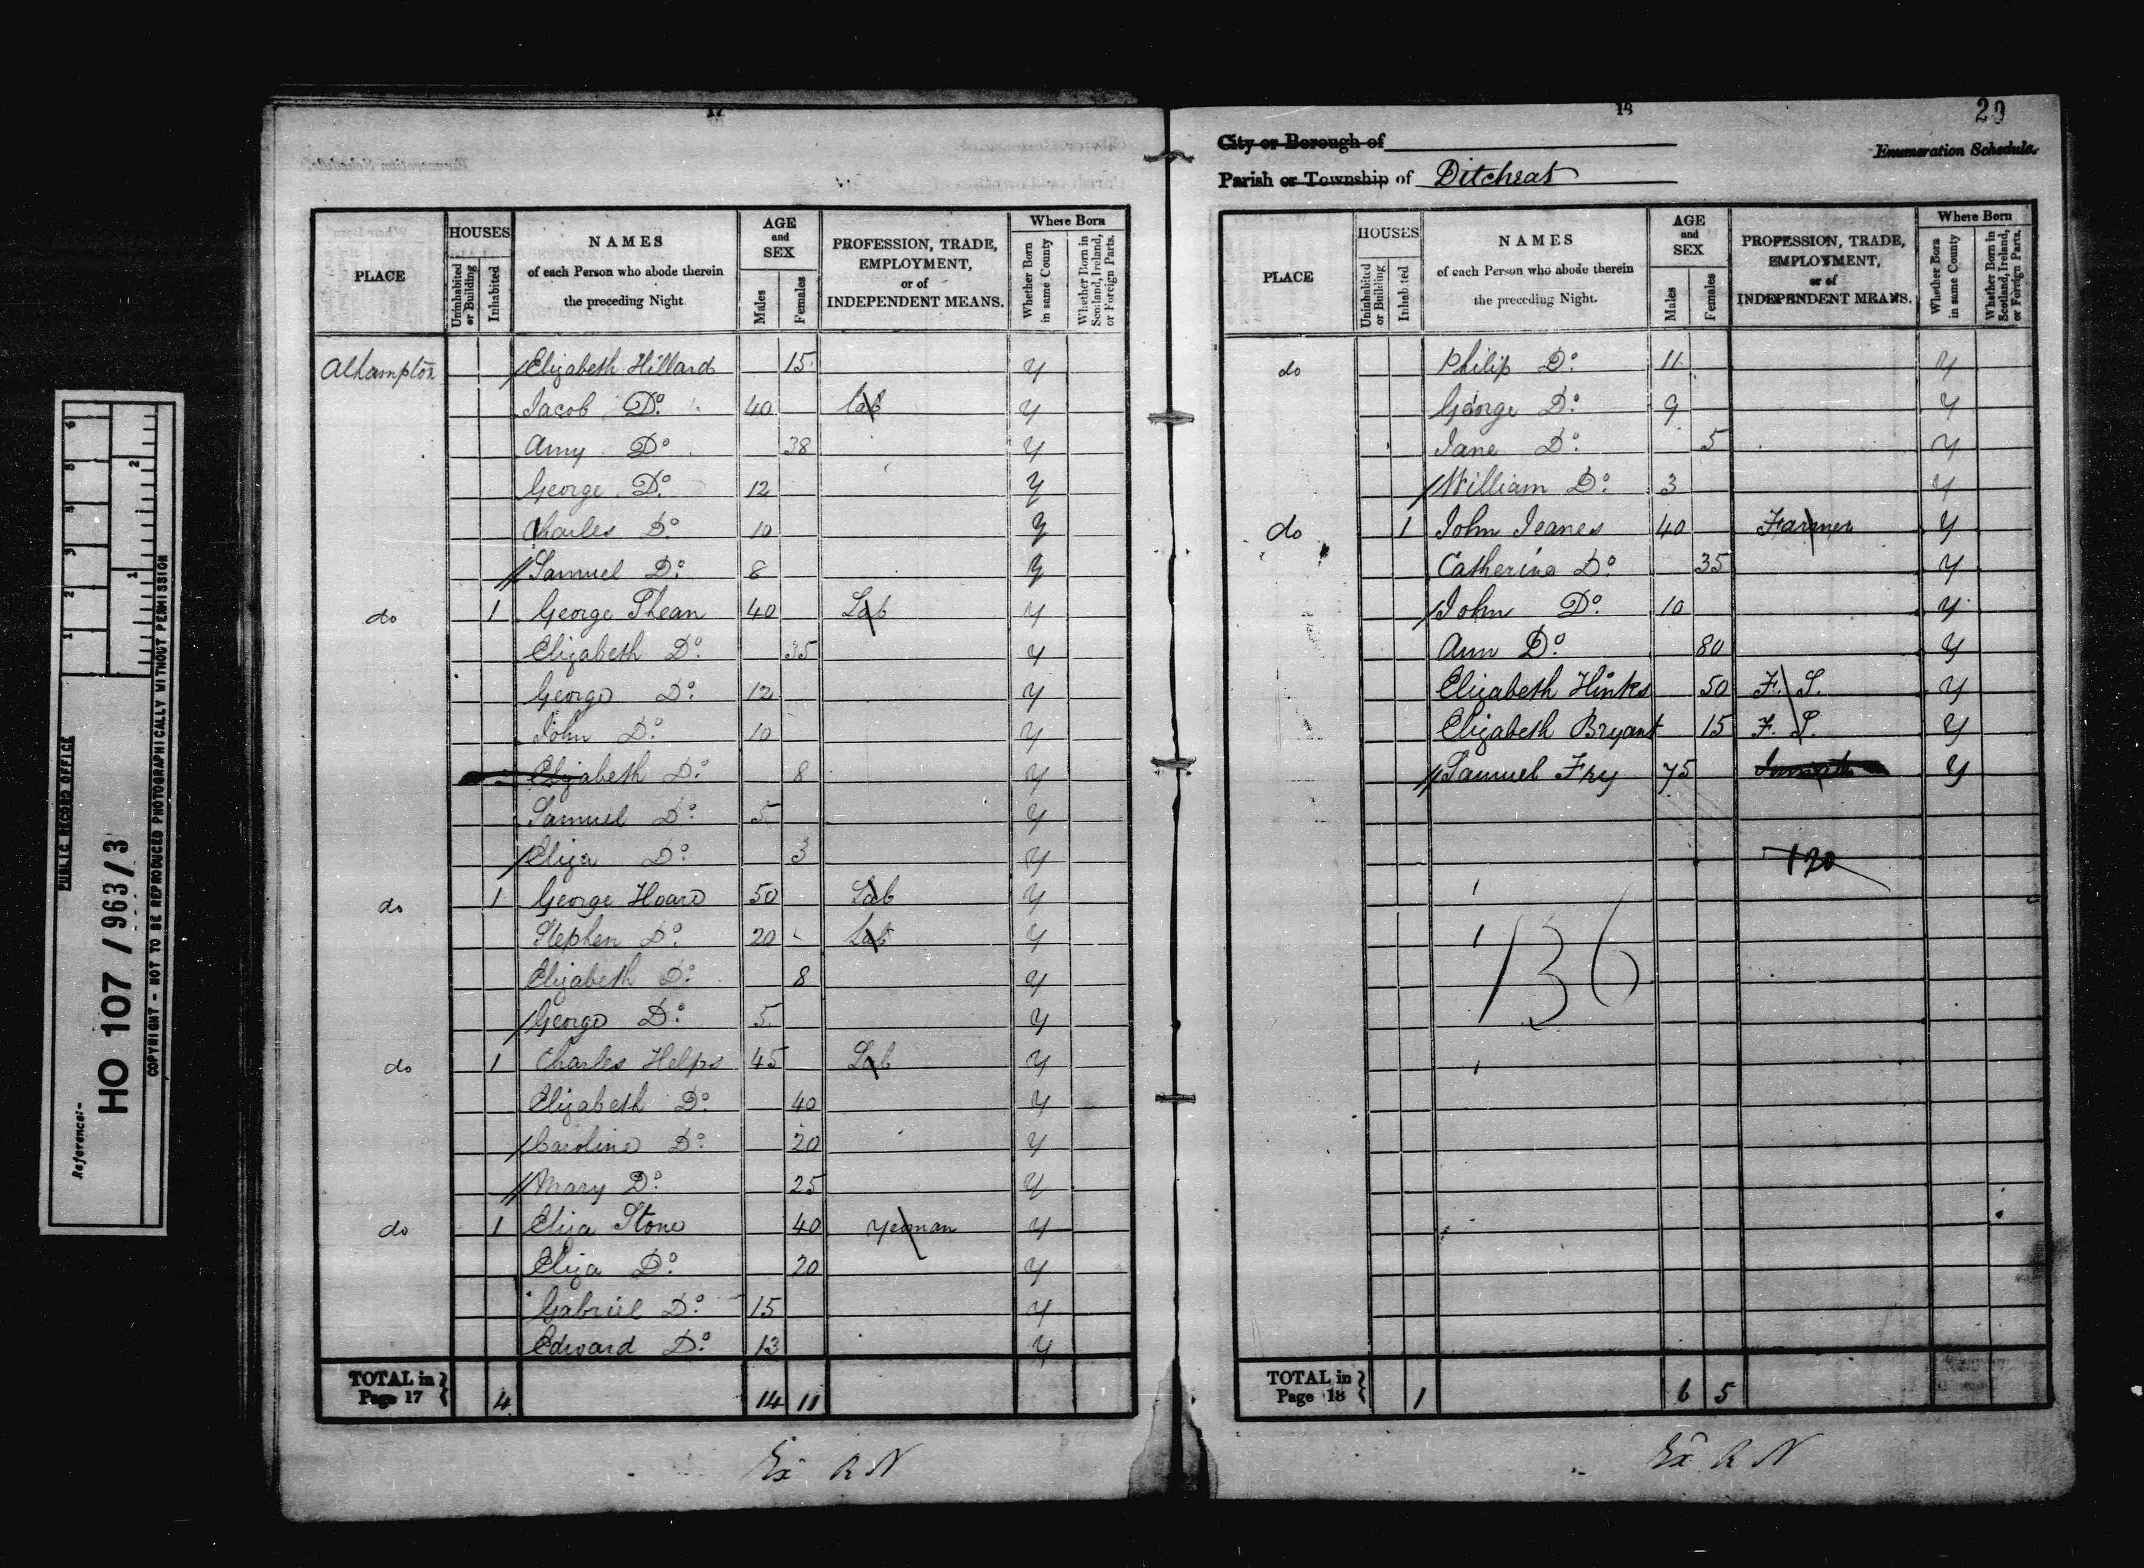 17
PLACE
HOUSES
Uninhabited or Building
Inhabited
NAMES
of each Person who abode therein
the preceding Night
AGE
and
SEX
Males
Females
PROFESSION, TRADE,
EMPLOYMENT,
or of
INDEPENDENT MEANS.
Where Born
Whether Born in same County
Whether Born in Scotland, Ireland, or Foreign Parts.
Alhampton Elizabeth Hillard 15 Y
Jacob Do. 40 Lab Y
Amy Do 38 Y
George Do. 12 Y
Charles Do. 10 Y
Samuel Do. 8 Y
do 1 George Phean 40 Lab Y
Elizabeth Do. 35 Y
George Do. 12 Y
John Do. 10 Y
Elizabeth Do. 8 Y
Samuel Do. 5 Y
Eliza Do. 3 Y
do 1 George Hoare 50 Lab Y
Stephen Do. 20 Lab Y
Elizabeth Do. 8 Y
George Do. 5 Y
do 1 Charles Helps 45 Lab Y
Elizabeth Do. 40 Y
Caroline Do. 20 Y
Mary Do. 25 Y
do 1 Eliza Stone 40 Yeoman Y
Eliza Do. 20 Y
Gabriel Do. 15 Y
Edward Do. 13 Y
TOTAL in
Page 17 4 14 11
Ex R N
18
20
City or Borough of
Enumeration Schedule.
Parish or Township of Ditcheat
PLACE
HOUSES
Uninhabited or Building
Inhabited
NAMES
of each Person who abode therein
the preceding Night.
AGE
and
SEX
Males
Females
PROFESSION, TRADE,
EMPLOYMENT,
or of
INDEPENDENT MEANS.
Where Born
Whether Born in same County
Whether Born in Scotland, Ireland, or Foreign Parts.
do Philip Do. 11 Y
George Do. 9 Y
Jane Do. 5 Y
William Do. 3 Y
do 1 John Jeanes 40 Farmer Y
Catherine Do. 35 Y
John Do. 10 Y
Ann Do. 80 Y
Elizabeth Hinks 50 F. S. Y
Elizabeth Bryant 15 F. S. Y
Samuel Fry 75 Y
120
136
TOTAL in
Page 18 1 6 5
Ex R N
Reference:-
HO 107 / 963/3
PUBLIC RECORD OFFICE
1 2 3 4 5 6
1 2
COPYRIGHT - NOT TO BE REPRODUCED PHOTOGRAPHICALLY WITHOUT PERMISSION